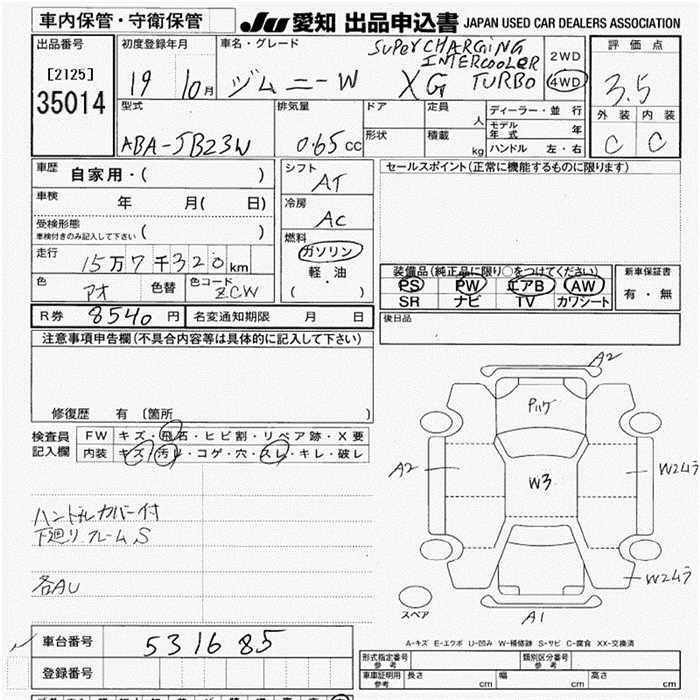 車内保管・守衛保管
JU 愛知 出品申込書 JAPAN USED CAR DEALERS ASSOCIATION
出品番号
[2125]
35014
初度登録年月
19 10月
車名・グレード
ジムニーW XG
SUPER CHARGING
INTERCOOLER
TURBO
2WD
4WD
評価点
3.5
外装 内装
C C
型式
ABA-JB23W
排気量
0.65cc
ドア 定員 人
形状 積載 kg
ディーラー・並行
モデル年式 年
ハンドル 左・右
車歴 自家用・( )
車検 年 月( 日)
受検形態
車検付きのみ記入して下さい ( )
走行 15万7千320km
色 アオ 色替 色コード ZCW
シフト
AT
冷房
AC
燃料
ガソリン
軽・油
( )
セールスポイント(正常に機能するものに限ります)
装備品(純正品に限り○をつけてください)
PS PW エアB AW
SR ナビ TV カワシート
新車保証書
有・無
R券 8540円 名変通知期限 月 日
後日品
注意事項申告欄(不具合内容等は具体的に記入して下さい)
修復歴 有 〔箇所 〕
検査員記入欄
FW キズ・飛石・ヒビ割・リペア跡・X要
内装 キズ・汚レ・コゲ・穴・スレ・キレ・破レ
ハンドルカバー付
下廻り フレームS
各AU
A2
Pハゲ
A2
W3
W2ムラ
W2ムラ
A1
スペア
車台番号 531685
登録番号
A-キズ E-エクボ U-凹み W-補修跡 S-サビ C-腐食 XX-交換済
形式指定番号 参考 類別区分番号 参考
車庫証明用 参考 長さ cm 幅 cm 高さ cm